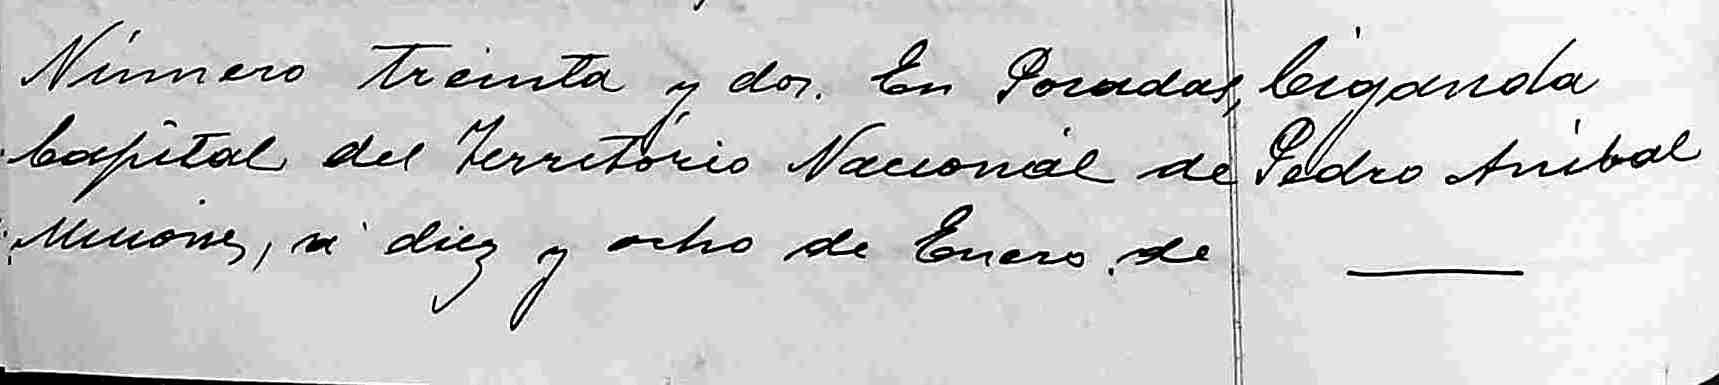 Número treinta y dos. En Posadas,
Capital del Território Nacional de
Misiones, á diez y ocho de Enero de
Ciganda
Pedro Anibal